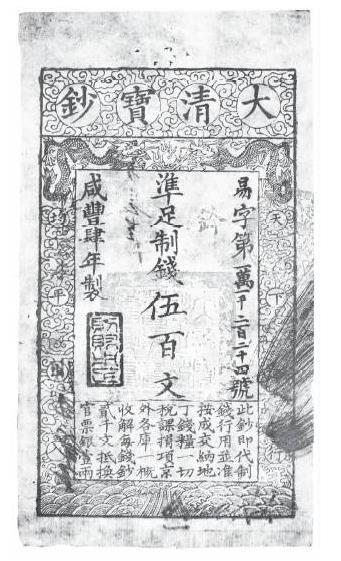 大清寶鈔
天下
行
易字第一萬千二百二十四號
準足制錢伍百文
咸豐肆年製
平
此鈔即代制
錢行用並准
按成交納地
丁錢糧一切
稅課捐項京
外各庫一概
收解每錢鈔
貳千文抵換
官票銀壹兩